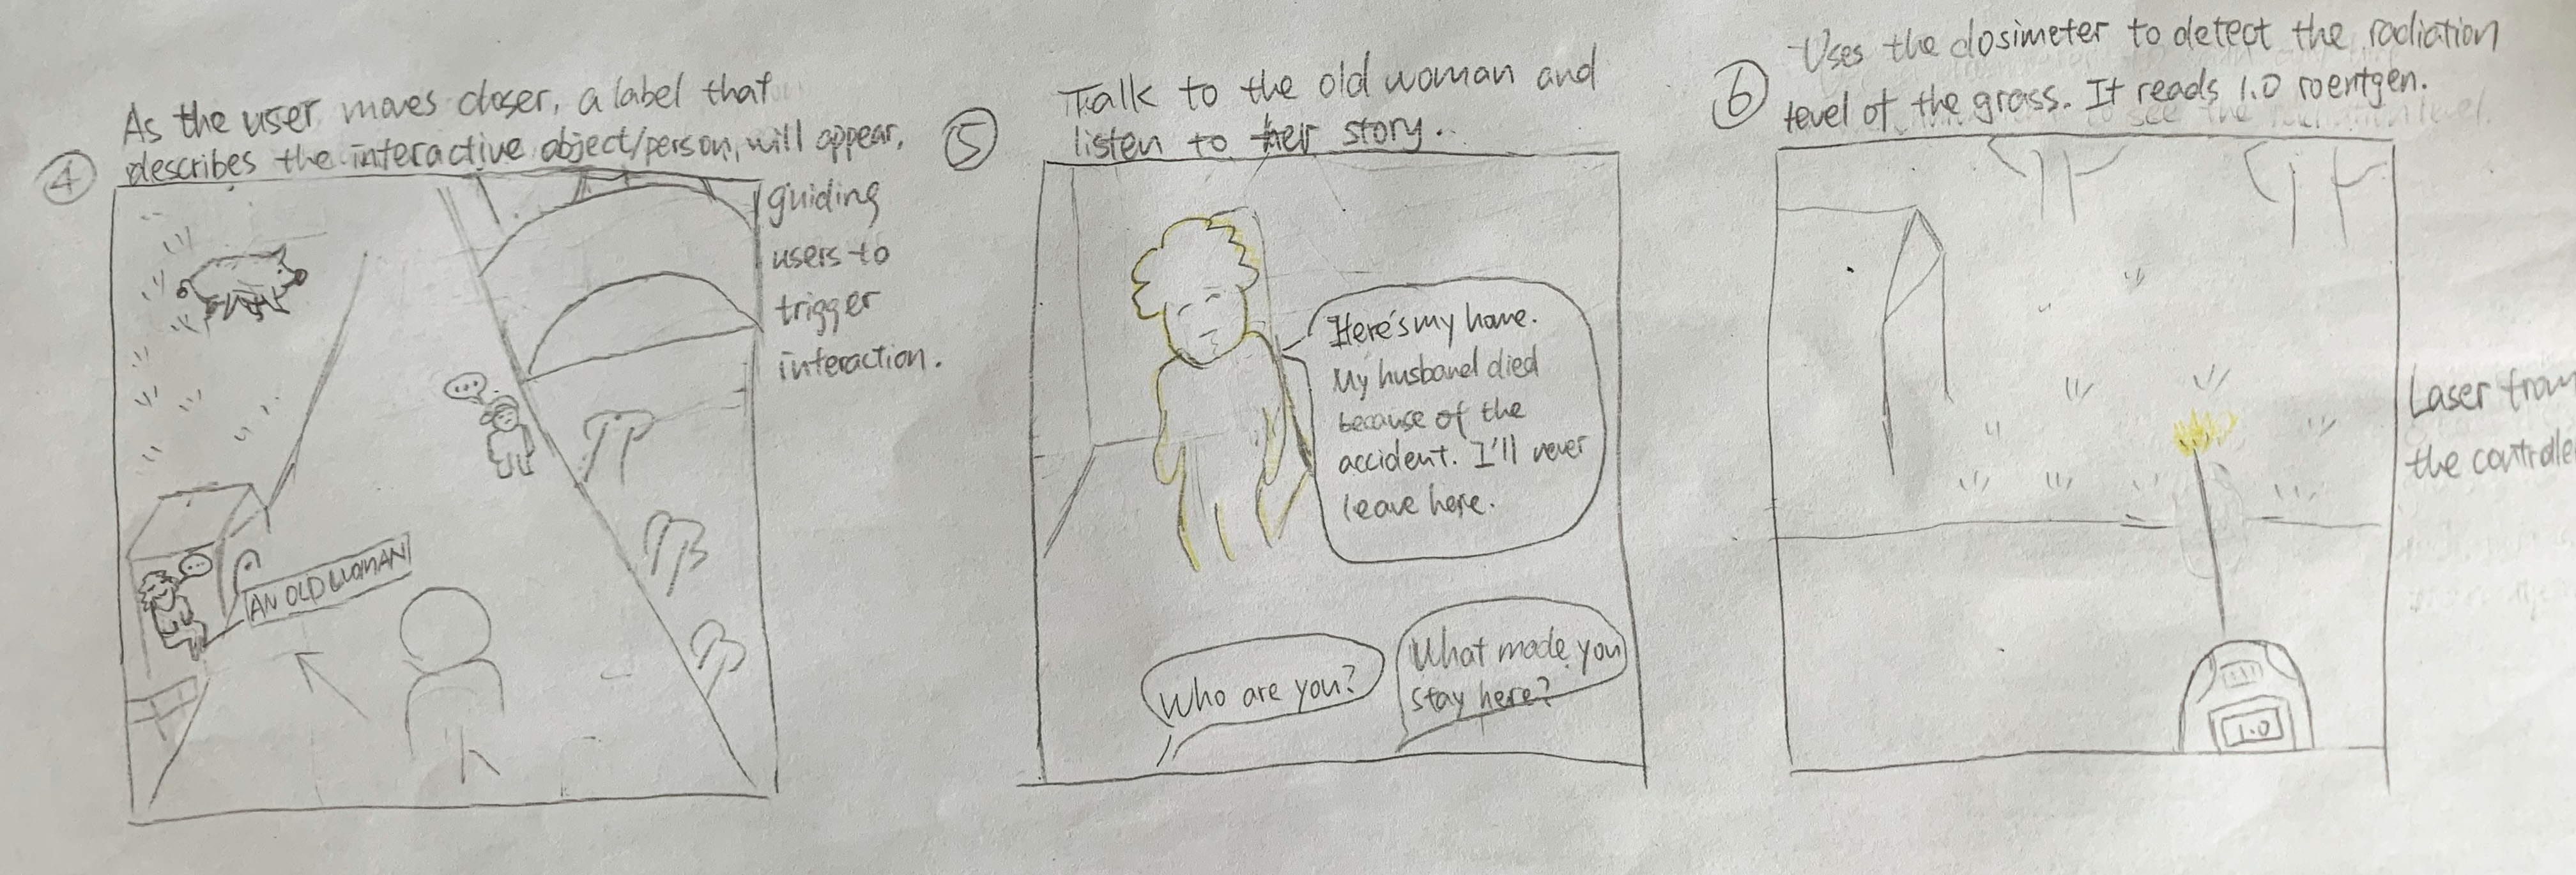 ④
As the user moves closer, a label that
describes the interactive object/person, will appear,
guiding
users to
trigger
interaction.
...
...
AN OLD WOMAN
⑤
Talk to the old woman and
listen to her story.
Here's my home.
My husband died
because of the
accident. I'll never
leave here.
Who are you?
What made you
stay here?
⑥
Uses the dosimeter to detect the radiation
level of the grass. It reads 1.0 roentgen.
Laser from
the controlle
1.0